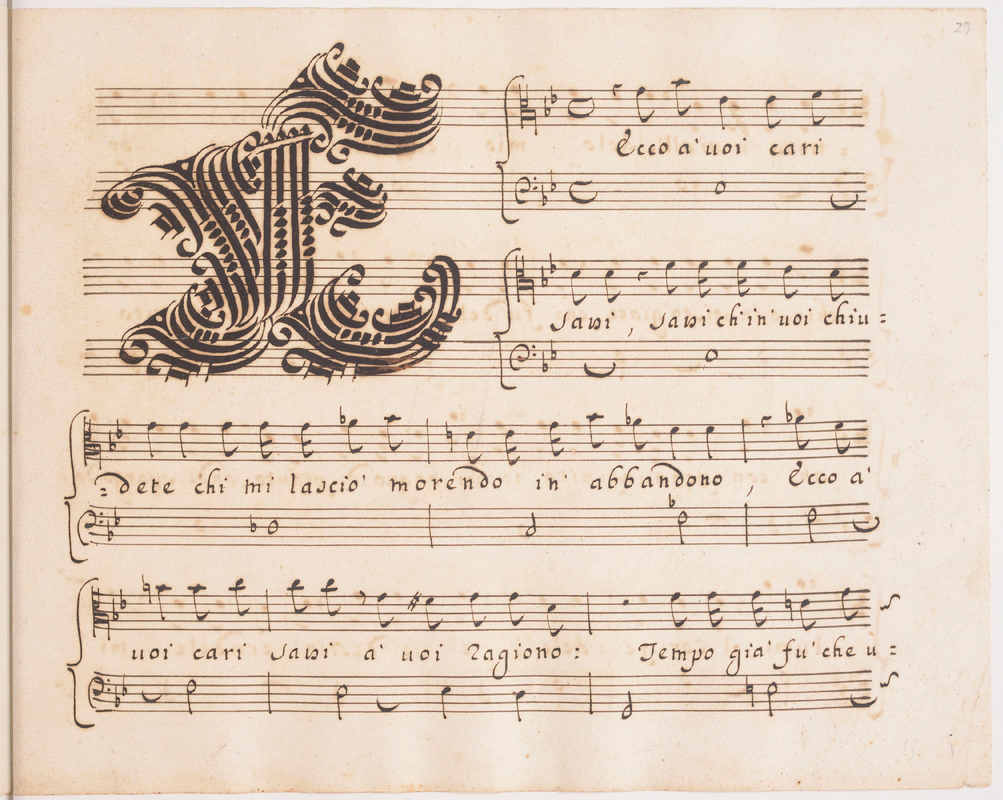 29
E
Ecco a' uoi cari
Sassi, Sassi ch'in' uoi chiu=
=dete chi mi lascio' morendo in' abbandono, Ecco a'
uoi cari Sassi a' uoi Ragiono: Tempo gia' fu' che u=